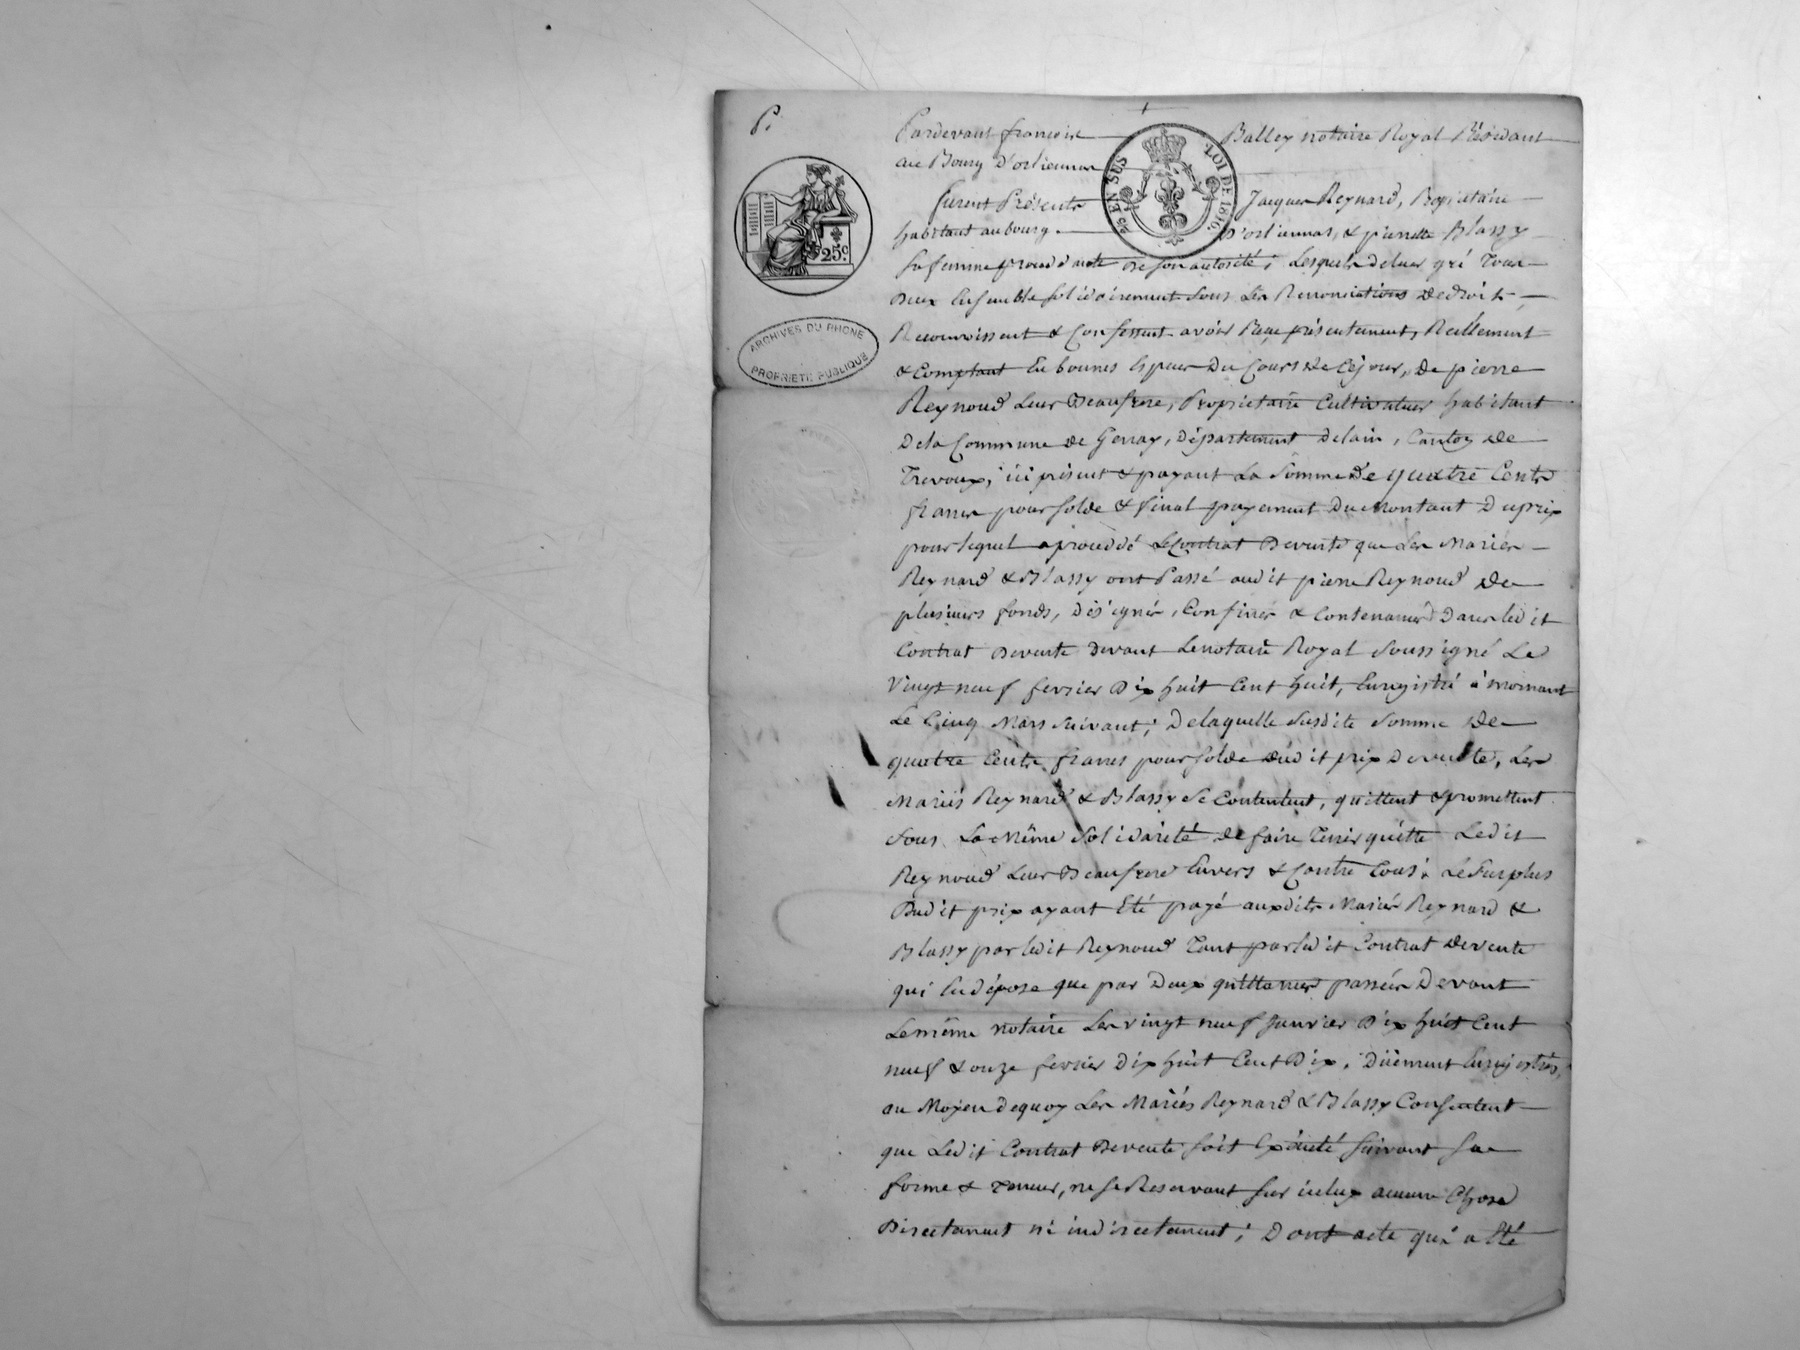 P.
Pardevant françois Balley notaire Royal Résidant
au Bourg d'orliennas
furent Présents Jacques Reynard, Propriétaire
habitant au bourg d'orliennas, & pierrette Blassy
sa femme procédante de son autorité; Lesquels de leur gré Tous
deux Ensemble solidairement sous Les Renonciations de droit,
Reconnoissent & Confessent avoir Reçu présentement, Réellement
& Comptant En bonnes Espèces du Cours de Cejour, de pierre
Reynoud Leur Beaufrere, Propriétaire Cultivateur habitant
dela Commune de Genay, département delain, Canton de
Trevoux, ici présent & payant La Somme de quatre Cents
francs pour solde & final payement du Montant du prix
pour lequel a procédé Le Contrat de vente que Les Mariés
Reynard & Blassy ont Passé audit pierre Reynoud de
plusieurs fonds, désignés, Confinés & Contenancés dans ledit
Contrat de vente devant Le notaire Royal Soussigné Le
Vingt neuf fevrier dix huit Cent huit, Enregistré à mornant
Le Cinq Mars Suivant; de laquelle susdite somme de
quatre Cents francs pour solde dudit prix de vente, Les
Mariés Reynard & Blassy se Contentent, quittent & promettent
sous La Même Solidarité de faire Tenir quitte Ledit
Reynoud Leur Beaufrere Envers & Contre tous; Le Surplus
dudit prix ayant Eté payé auxdits Mariés Reynard &
Blassy par ledit Reynoud Tant par ledit Contrat de vente
qui En dépose que par Deux quittances passées Devant
Le même notaire Les vingt neuf Janvier dix huit Cent
neuf & onze fevrier dix huit Cent Dix, Dûement Enregistrés,
au Moyen dequoy Les Mariés Reynard & Blassy Consentent
que Ledit Contrat de vente soit Exécuté suivant sa
forme & teneur, ne se Reservant sur icelux aucune Chose
Directement ni indirectement; Dont acte qui a Eté
25 EN SUS
LOI DE 1816
25.c
ARCHIVES DU RHONE
PROPRIETE PUBLIQUE